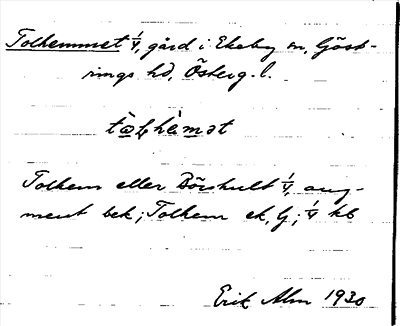 Tolhemmet 1/4, gård i Ekeby sn, Göst-
rings hd, Österg. l.
Tolhem eller Börshult 1/4, aug-
ment bek; Tolhem ek, G; 1/4 kb
Erik Alm 1930